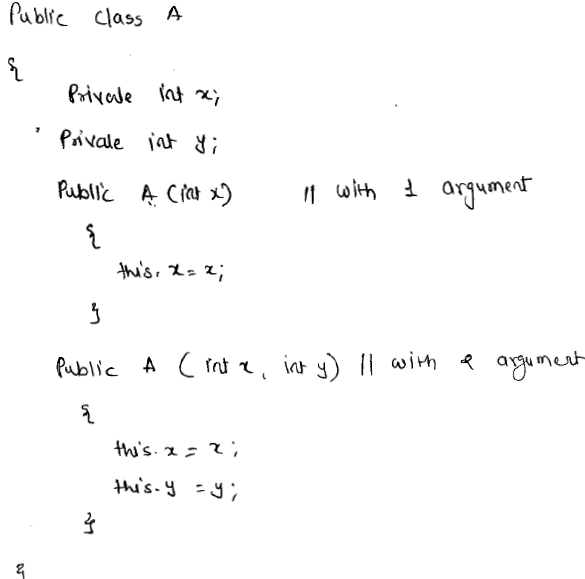 Public class A
{
Private int x;
Private int y;
Public A (int x) // with 1 argument
{
this. x = x;
}
Public A ( int x, int y) // with 2 argument
{
this. x = x;
this. y = y;
}
{